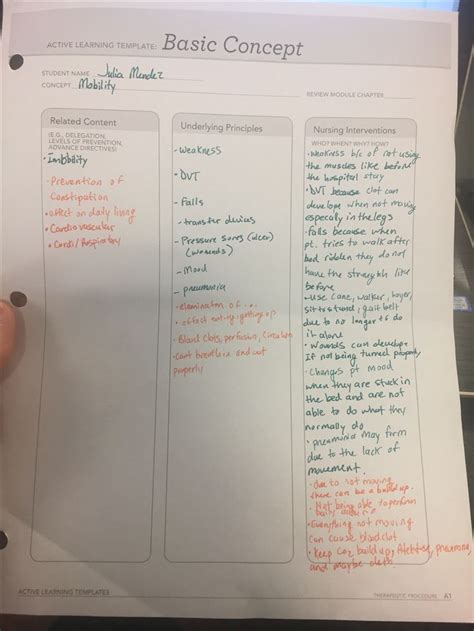 ACTIVE LEARNING TEMPLATE: Basic Concept
STUDENT NAME Julia Mendez
CONCEPT Mobility
REVIEW MODULE CHAPTER
Related Content
(E.G., DELEGATION,
LEVELS OF PREVENTION,
ADVANCE DIRECTIVES)
- Imobility
• Prevention of
Constipation
• effect on daily living
• Cardio vascular
• Cardi/Respiratory
Underlying Principles
- Weakness
- DVT
- Falls
- transfer devices
- Pressure sores (ulcer)
(wounds)
- Mood
- pneumonia
• elimination of ...
• effect eating, getting up
• Blood clots, perfusion, Circulation
• Cant breathe in and out
properly
Nursing Interventions
WHO? WHEN? WHY? HOW?
• weakness b/c of not using
the muscles like before
the hospital stay
• DVT because clot can
develope when not moving
especially in the legs
• falls because when
pt. tries to walk after
bed ridden they do not
have the strength like
before
• use cane, walker, hoyer,
sit to stand, gait belt
due to no longer to do
it alone
• Wounds can develope
If not being turned properly
• Changes pt mood
when they are stuck in
the bed and are not
able to do what they
normally do
• pneumonia may form
due to the lack of
movement.
• due to not moving
there can be a build up.
• Not being able to perform
daily
• Everything not moving
can cause blood clot
• keep CO2 build up, pneumonia,
and maybe death
ACTIVE LEARNING TEMPLATES
THERAPEUTIC PROCEDURE A1